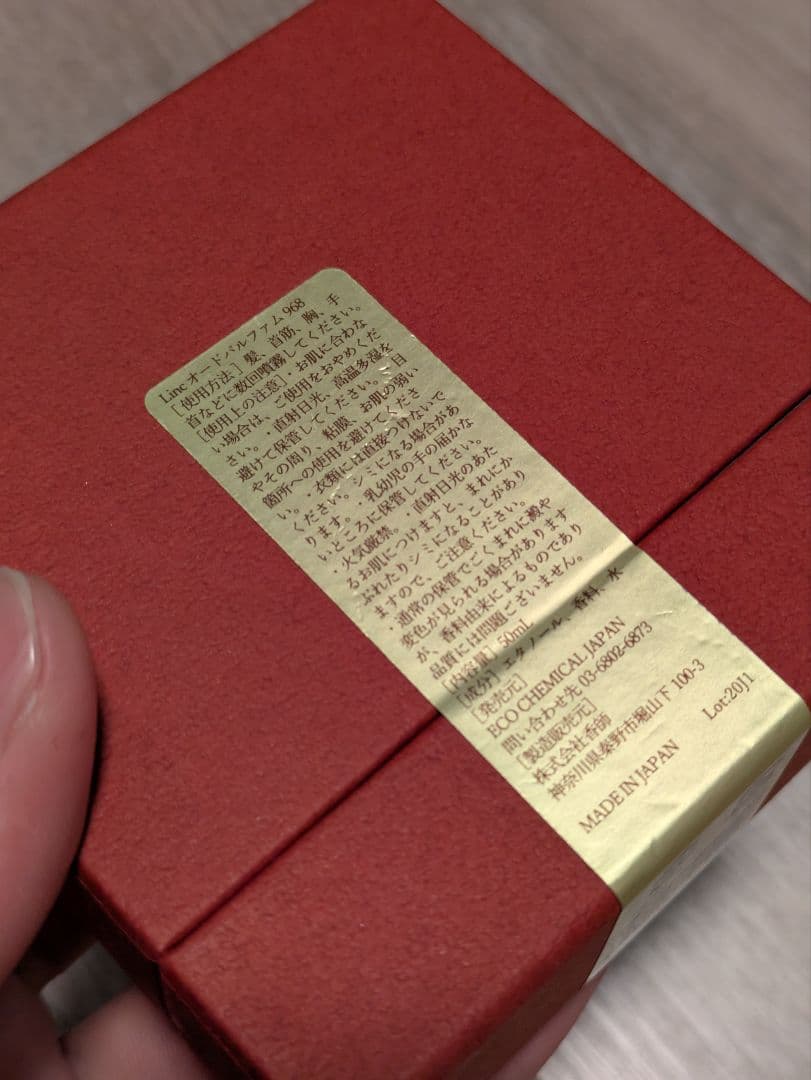 Linc オードパルファム 968
[使用方法] 髪、首筋、胸、手
首などに数回噴霧してください。
[使用上の注意]・お肌に合わな
い場合は、ご使用をおやめくだ
さい。・直射日光、高温多湿を
避けて保管してください。・目
やその周り、粘膜、お肌の弱い
箇所への使用を避けてくださ
い。・衣類には直接つけないで
ください。シミになる場合があ
ります。・乳幼児の手の届かな
いところに保管してください。
・火気厳禁。・直射日光のあた
るお肌につけますと、まれにか
ぶれたりシミになることがあり
ますので、ご注意ください。
・通常の保管でごくまれに澱や
変色が見られる場合があります
が、香料由来によるものであり
品質には問題ございません。
[内容量] 50mL
[成分] エタノール、香料、水
[発売元]
ECO CHEMICAL JAPAN
問い合わせ先 03-6802-6873
[製造販売元]
株式会社香師
神奈川県秦野市堀山下 100-3
Lot:20J1
MADE IN JAPAN